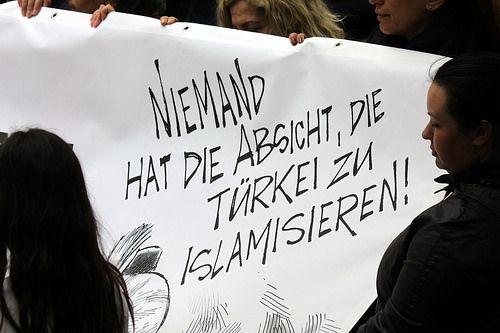 NIEMAND
HAT DIE ABSICHT, DIE
TÜRKEI ZU
ISLAMISIEREN!